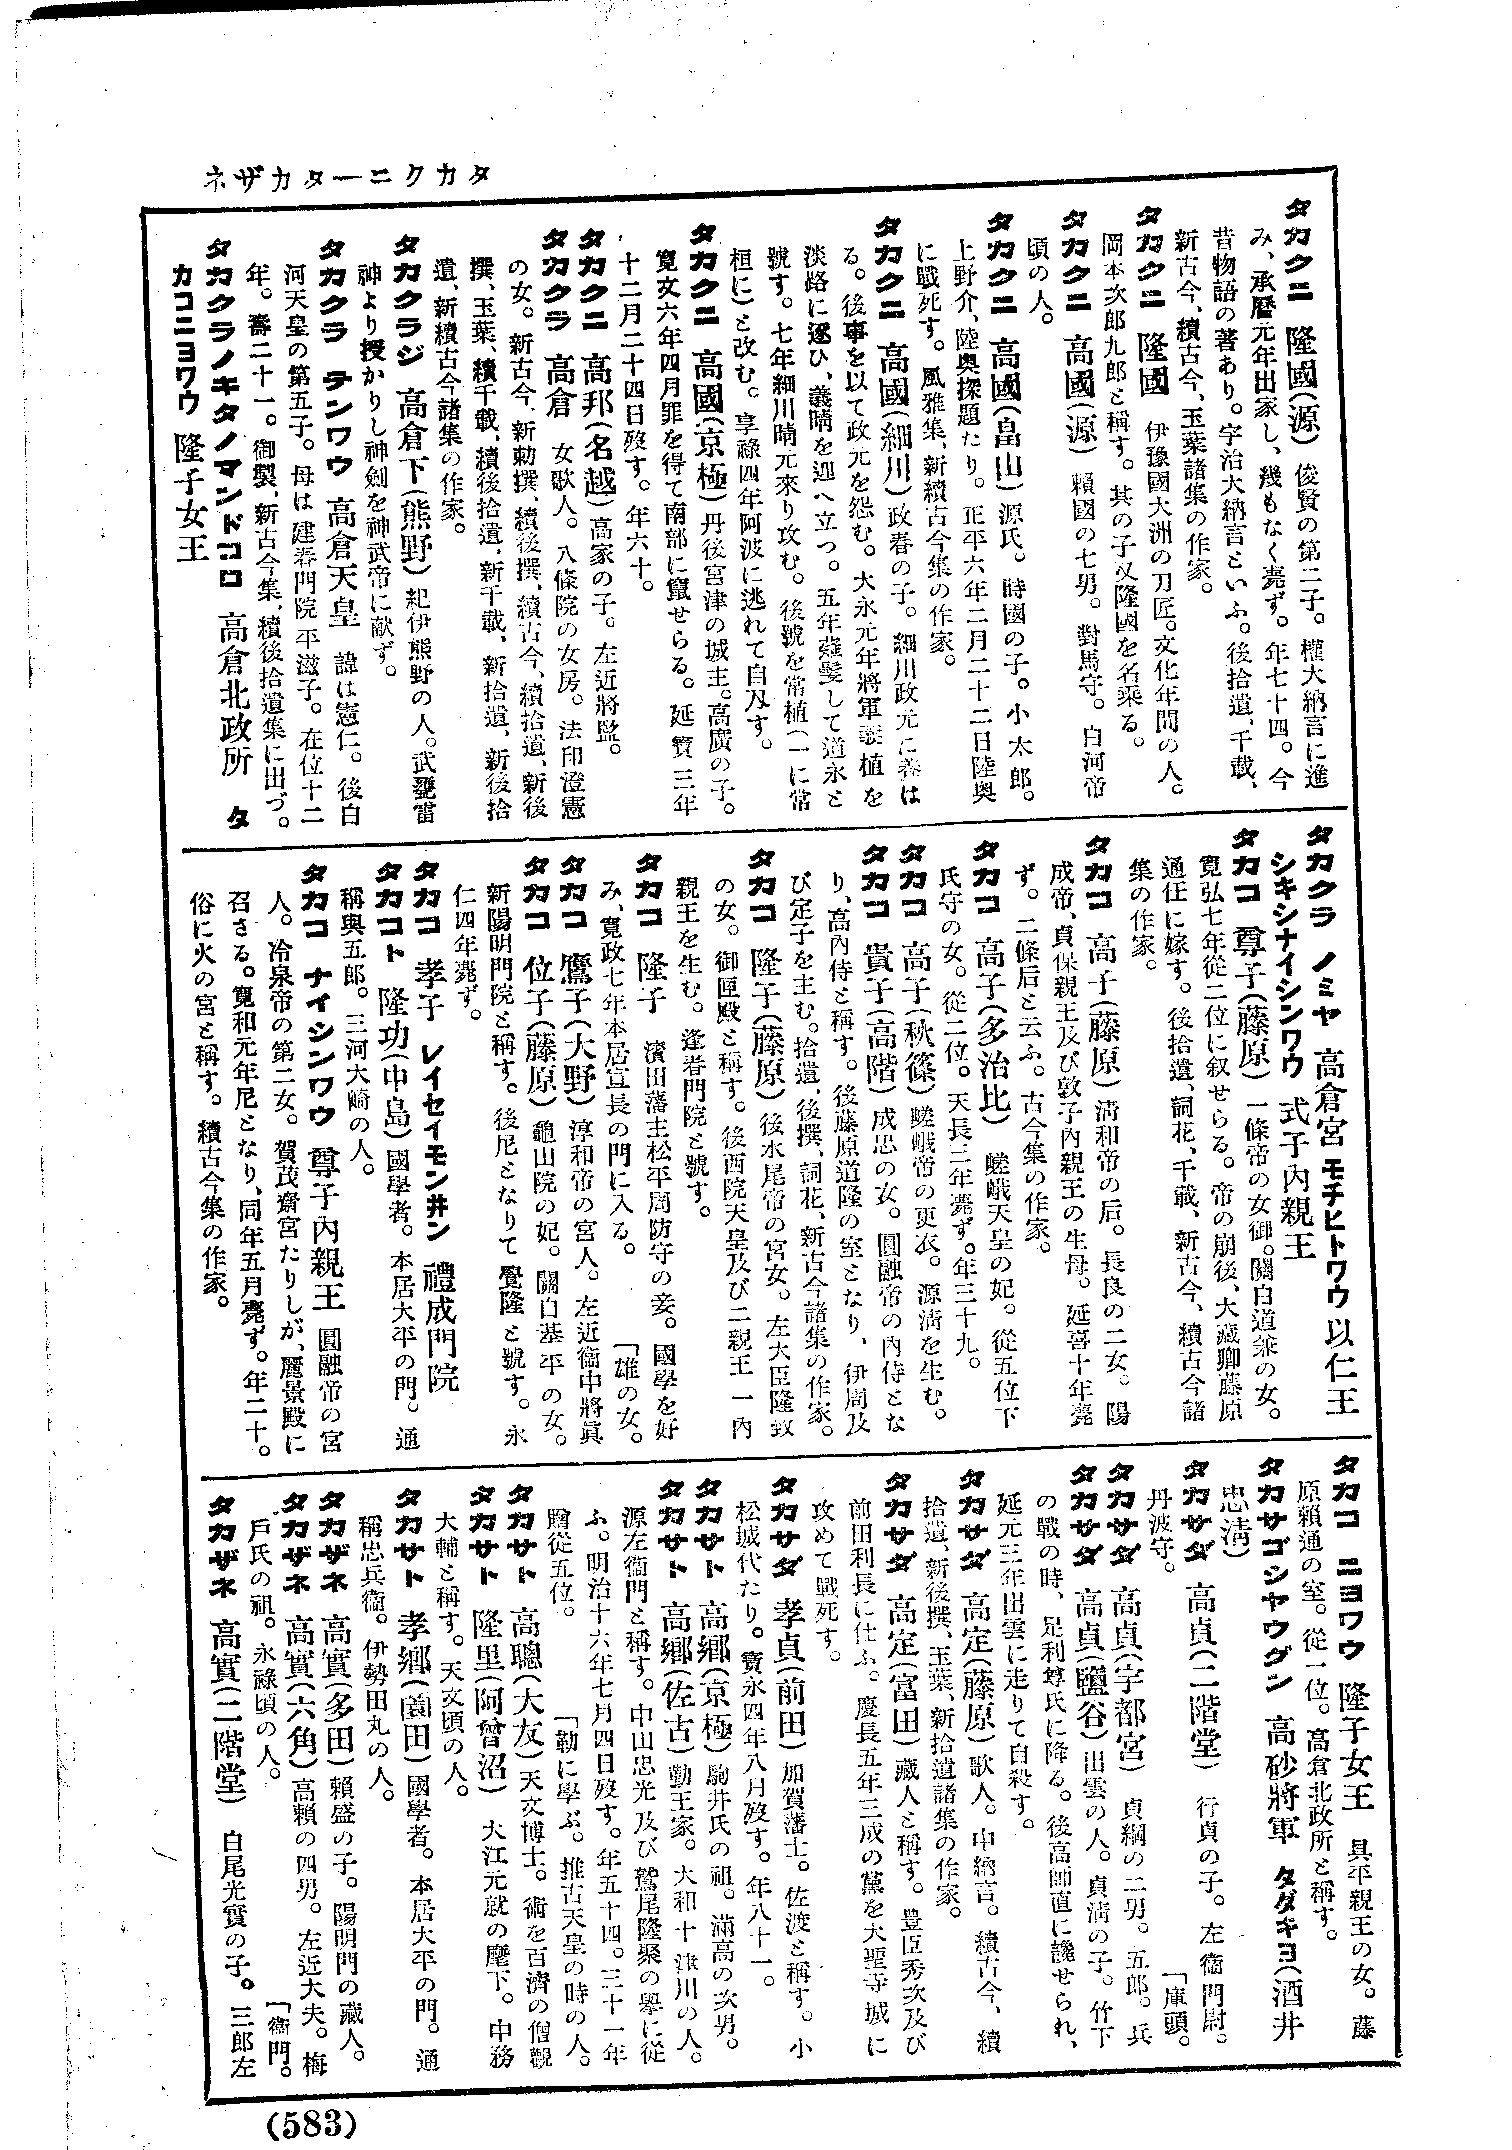 タカクニ―タカザネ
タカクニ 隆國(源) 俊賢の第二子。權大納言に進
み、承曆元年出家し、幾もなく薨ず。年七十四。今
昔物語の著あり。宇治大納言といふ。後拾遺、千載、
新古今、續古今、玉葉諸集の作家。
タカクニ 隆國 伊豫國大洲の刀匠。文化年間の人。
岡本次郎九郎と稱す。其の子又隆國を名乘る。
タカクニ 高國(源) 賴國の七男。對馬守。白河帝
頃の人。
タカクニ 高國(畠山) 源氏。時國の子。小太郎。
上野介、陸奧探題たり。正平六年二月二十二日陸奧
に戰死す。風雅集、新續古今集の作家。
タカクニ 高國(細川) 政春の子。細川政元に養は
る。後事を以て政元を怨む。大永元年將軍義植を
淡路に逐ひ、義晴を迎へ立つ。五年薙髮して道永と
號す。七年細川晴元來り攻む。後號を常植(一に常
桓に)と改む。享祿四年阿波に逃れて自刄す。
タカクニ 高國(京極) 丹後宮津の城主。高廣の子。
寬文六年四月罪を得て南部に竄せらる。延寶三年
十二月二十四日歿す。年六十。
タカクニ 高邦(名越) 高家の子。左近將監。
タカクラ 高倉 女歌人。八條院の女房。法印澄憲
の女。新古今、新勅撰、續後撰、續古今、續拾遺、新後
撰、玉葉、續千載、續後拾遺、新千載、新拾遺、新後拾
遺、新續古今諸集の作家。
タカクラジ 高倉下(熊野) 紀伊熊野の人。武甕雷
神より授かりし神劍を神武帝に献ず。
タカクラ テンワウ 高倉天皇 諱は憲仁。後白
河天皇の第五子。母は建春門院平滋子。在位十二
年。壽二十一。御製、新古今集、續後拾遺集に出づ。
タカクラノキタノマンドコロ 高倉北政所 タ
カコニヨワウ 隆子女王
タカクラ ノミヤ 高倉宮 モチヒトワウ 以仁王
シキシナイシンワウ 式子內親王
タカコ 尊子(藤原) 一條帝の女御。關白道兼の女。
寬弘七年從二位に叙せらる。帝の崩後、大藏卿藤原
通任に嫁す。後拾遺、詞花、千載、新古今、續古今諸
集の作家。
タカコ 高子(藤原) 淸和帝の后。長良の二女。陽
成帝、貞保親王及び敦子內親王の生母。延喜十年薨
ず。二條后と云ふ。古今集の作家。
タカコ 高子(多治比) 嵯峨天皇の妃。從五位下
氏守の女。從二位。天長二年薨ず。年三十九。
タカコ 高子(秋篠) 嵯峨帝の更衣。源淸を生む。
タカコ 貴子(高階) 成忠の女。圓融帝の內侍とな
り、高內侍と稱す。後藤原道隆の室となり、伊周及
び定子を主む。拾遺、後撰、詞花、新古今諸集の作家。
タカコ 隆子(藤原) 後水尾帝の宮女。左大臣隆致
の女。御匣殿と稱す。後西院天皇及び二親王一內
親王を生む。逢春門院と號す。
タカコ 隆子 濱田藩主松平周防守の妾。國學を好
み、寬政七年本居宣長の門に入る。
タカコ 鷹子(大野) 淳和帝の宮人。左近衞中將眞
「雄の女。
タカコ 位子(藤原) 龜山院の妃。關白基平の女。
新陽明門院と稱す。後尼となりて覺隆と號す。永
仁四年薨ず。
タカコ 孝子 レイセイモン井ン 禮成門院
タカコト 隆功(中島) 國學者。本居大平の門。通
稱與五郎。三河大崎の人。
タカコ ナイシンワウ 尊子內親王 圓融帝の宮
人。冷泉帝の第二女。賀茂齋宮たりしが、麗景殿に
召さる。寬和元年尼となり、同年五月薨ず。年二十。
俗に火の宮と稱す。續古今集の作家。
タカコ ニヨワウ 隆子女王 具平親王の女。藤
原賴通の室。從一位。高倉北政所と稱す。
タカサゴシヤウグン 高砂將軍 タダキヨ(酒井
忠淸)
タカサダ 高貞(二階堂) 行貞の子。左衞門尉。
丹波守。
「庫頭。
タカサダ 高貞(宇都宮) 貞綱の二男。五郎。兵
タカサダ 高貞(鹽谷) 出雲の人。貞淸の子。竹下
の戰の時、足利尊氏に降る。後高師直に讒せられ、
延元三年出雲に走りて自殺す。
タカサダ 高定(藤原) 歌人。中納言。續古今、續
拾遺、新後撰、玉葉、新拾遺諸集の作家。
タカサダ 高定(富田) 藏人と稱す。豊臣秀次及び
前田利長に仕ふ。慶長五年三成の黨を大聖寺城に
攻めて戰死す。
タカサダ 孝貞(前田) 加賀藩士。佐渡と稱す。小
松城代たり。寶永四年八月歿す。年八十一。
タカサト 高鄕(京極) 駒井氏の祖。滿高の次男。
タカサト 高鄕(佐古) 勤王家。大和十津川の人。
源左衞門と稱す。中山忠光及び鷲尾隆聚の擧に從
ふ。明治十六年七月四日歿す。年五十四。三十一年
贈從五位。
「勒に學ぶ。推古天皇の時の人。
タカサト 高聰(大友) 天文博士。術を百濟の僧觀
タカサト 隆里(阿曾沼) 大江元就の麾下。中務
大輔と稱す。天文頃の人。
タカサト 孝鄕(薗田) 國學者。本居大平の門。通
稱忠兵衞。伊勢田丸の人。
タカザネ 高實(多田) 賴盛の子。陽明門の藏人。
タカザネ 高實(六角) 高賴の四男。左近大夫。梅
戶氏の祖。永祿頃の人。
「衞門。
タカザネ 高實(二階堂) 白尾光實の子。三郎左
(583)